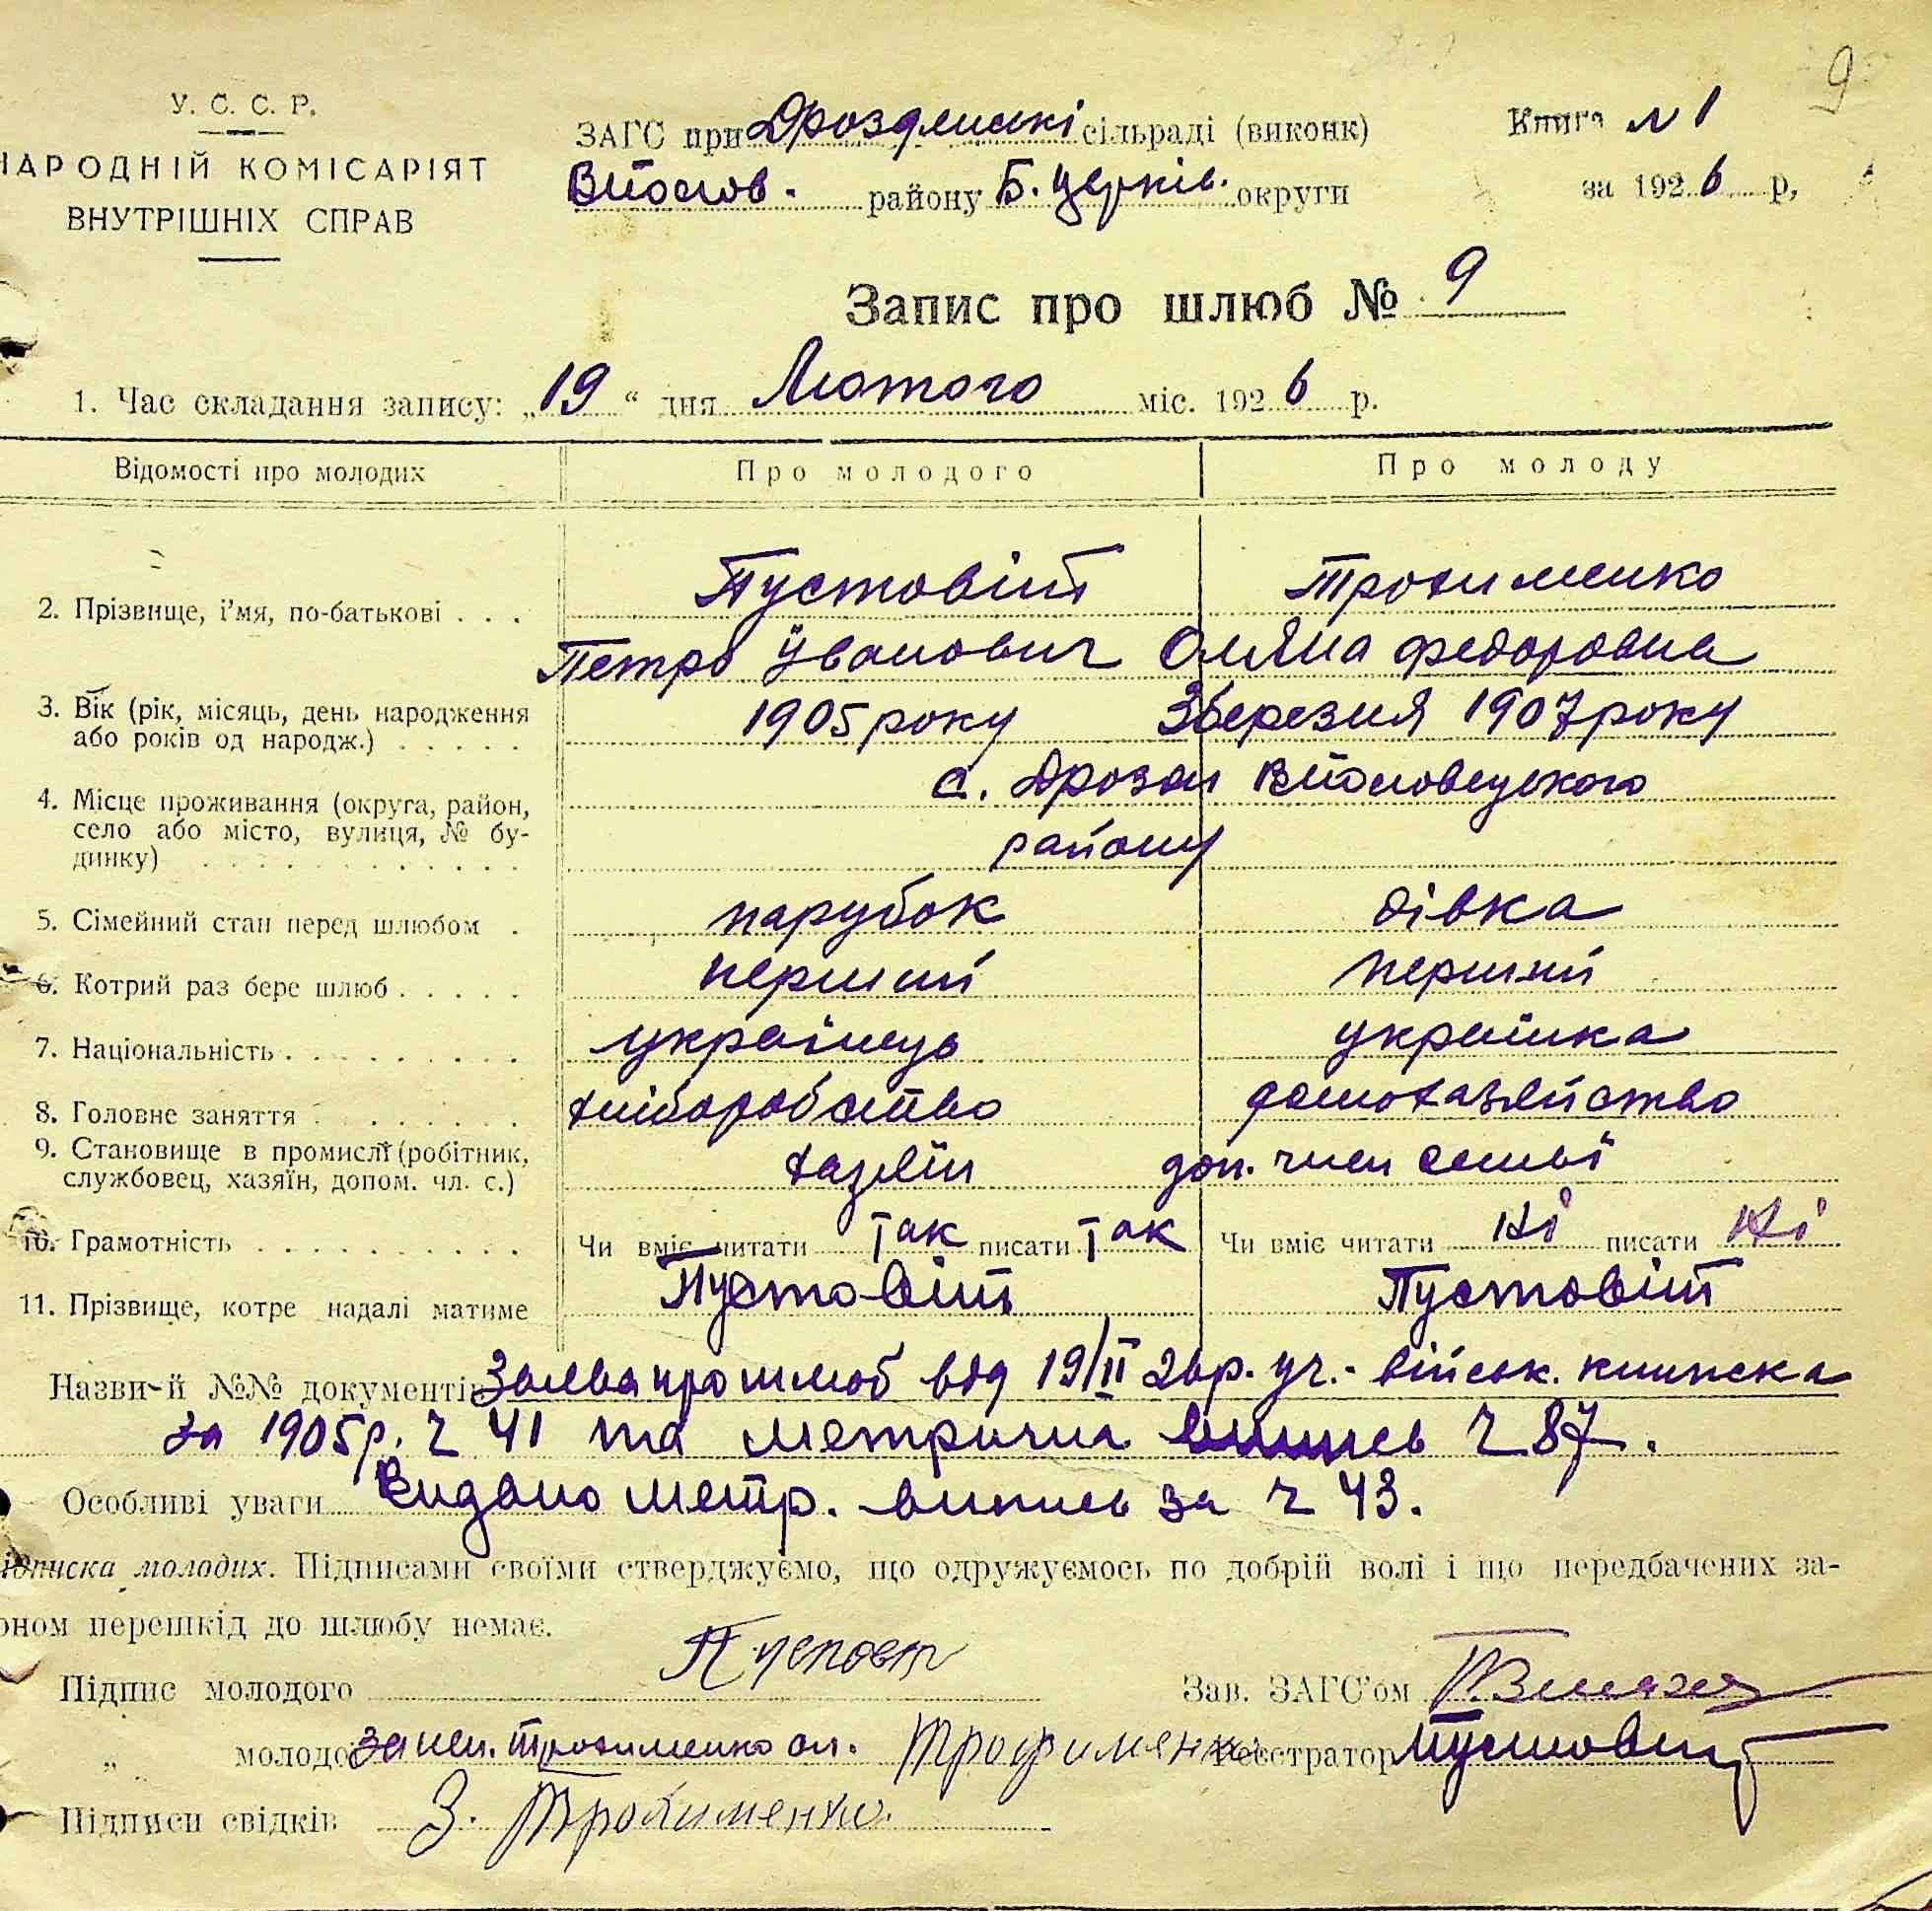 9
У. С. С. Р.
НАРОДНІЙ КОМІСАРІЯТ
ВНУТРІШНІХ СПРАВ
ЗАГС при Дроздянські сільраді (виконк)
району Б. Церків. округи
Книга № 1
за 1926 р,
Запис про шлюб № 9
1. Час складання запису: „19“ дня Лютого міс. 1926 р.
Відомості про молодих Про молодого Про молоду
2. Прізвище, і'мя, по-батькові . . . Пустовіт Трохименко
Петро Іванович Оляна Федоровна
3. Вік (рік, місяць, день народження 1905 року 3 березня 1907 року
або років од народж.) . . . . .
4. Місце проживання (округа, район, с. Дрозди
село або місто, вулиця, № бу- району
динку) . . . . . . . . . . . .
5. Сімейний стан перед шлюбом . парубок дівка
6. Котрий раз бере шлюб . . . . . перший перший
7. Національність . . . . . . . . українець украінка
8. Головне заняття . . . . . . . хліборобство домохазяйство
9. Становище в промислі (робітник, хазяїн доп. член семьї
службовец, хазяїн, допом. чл. с.)
10. Грамотність . . . . . . . . . . Чи вміє читати так писати так Чи вміє читати Ні писати Ні
11. Прізвище, котре надалі матиме Пустовіт Пустовіт
Назви й №№ документів Заява про шлюб від 19/II 26 р. уч.- військ. книжка
за 1905 р. ч 41 та метрична випись ч 87.
Особливі уваги Видано метр. випись за ч 43.
Підписка молодих. Підписами своїми стверджуємо, що одружуємось по добрій волі і що передбачених за-
коном перешкід до шлюбу немає.
Підпис молодого Пустовіт Зав. ЗАГС'ом
„ молодої за неп. Трохименко Ол. Трофименко Реєстратор Пустовіт
Підписи свідків З. Трохименко